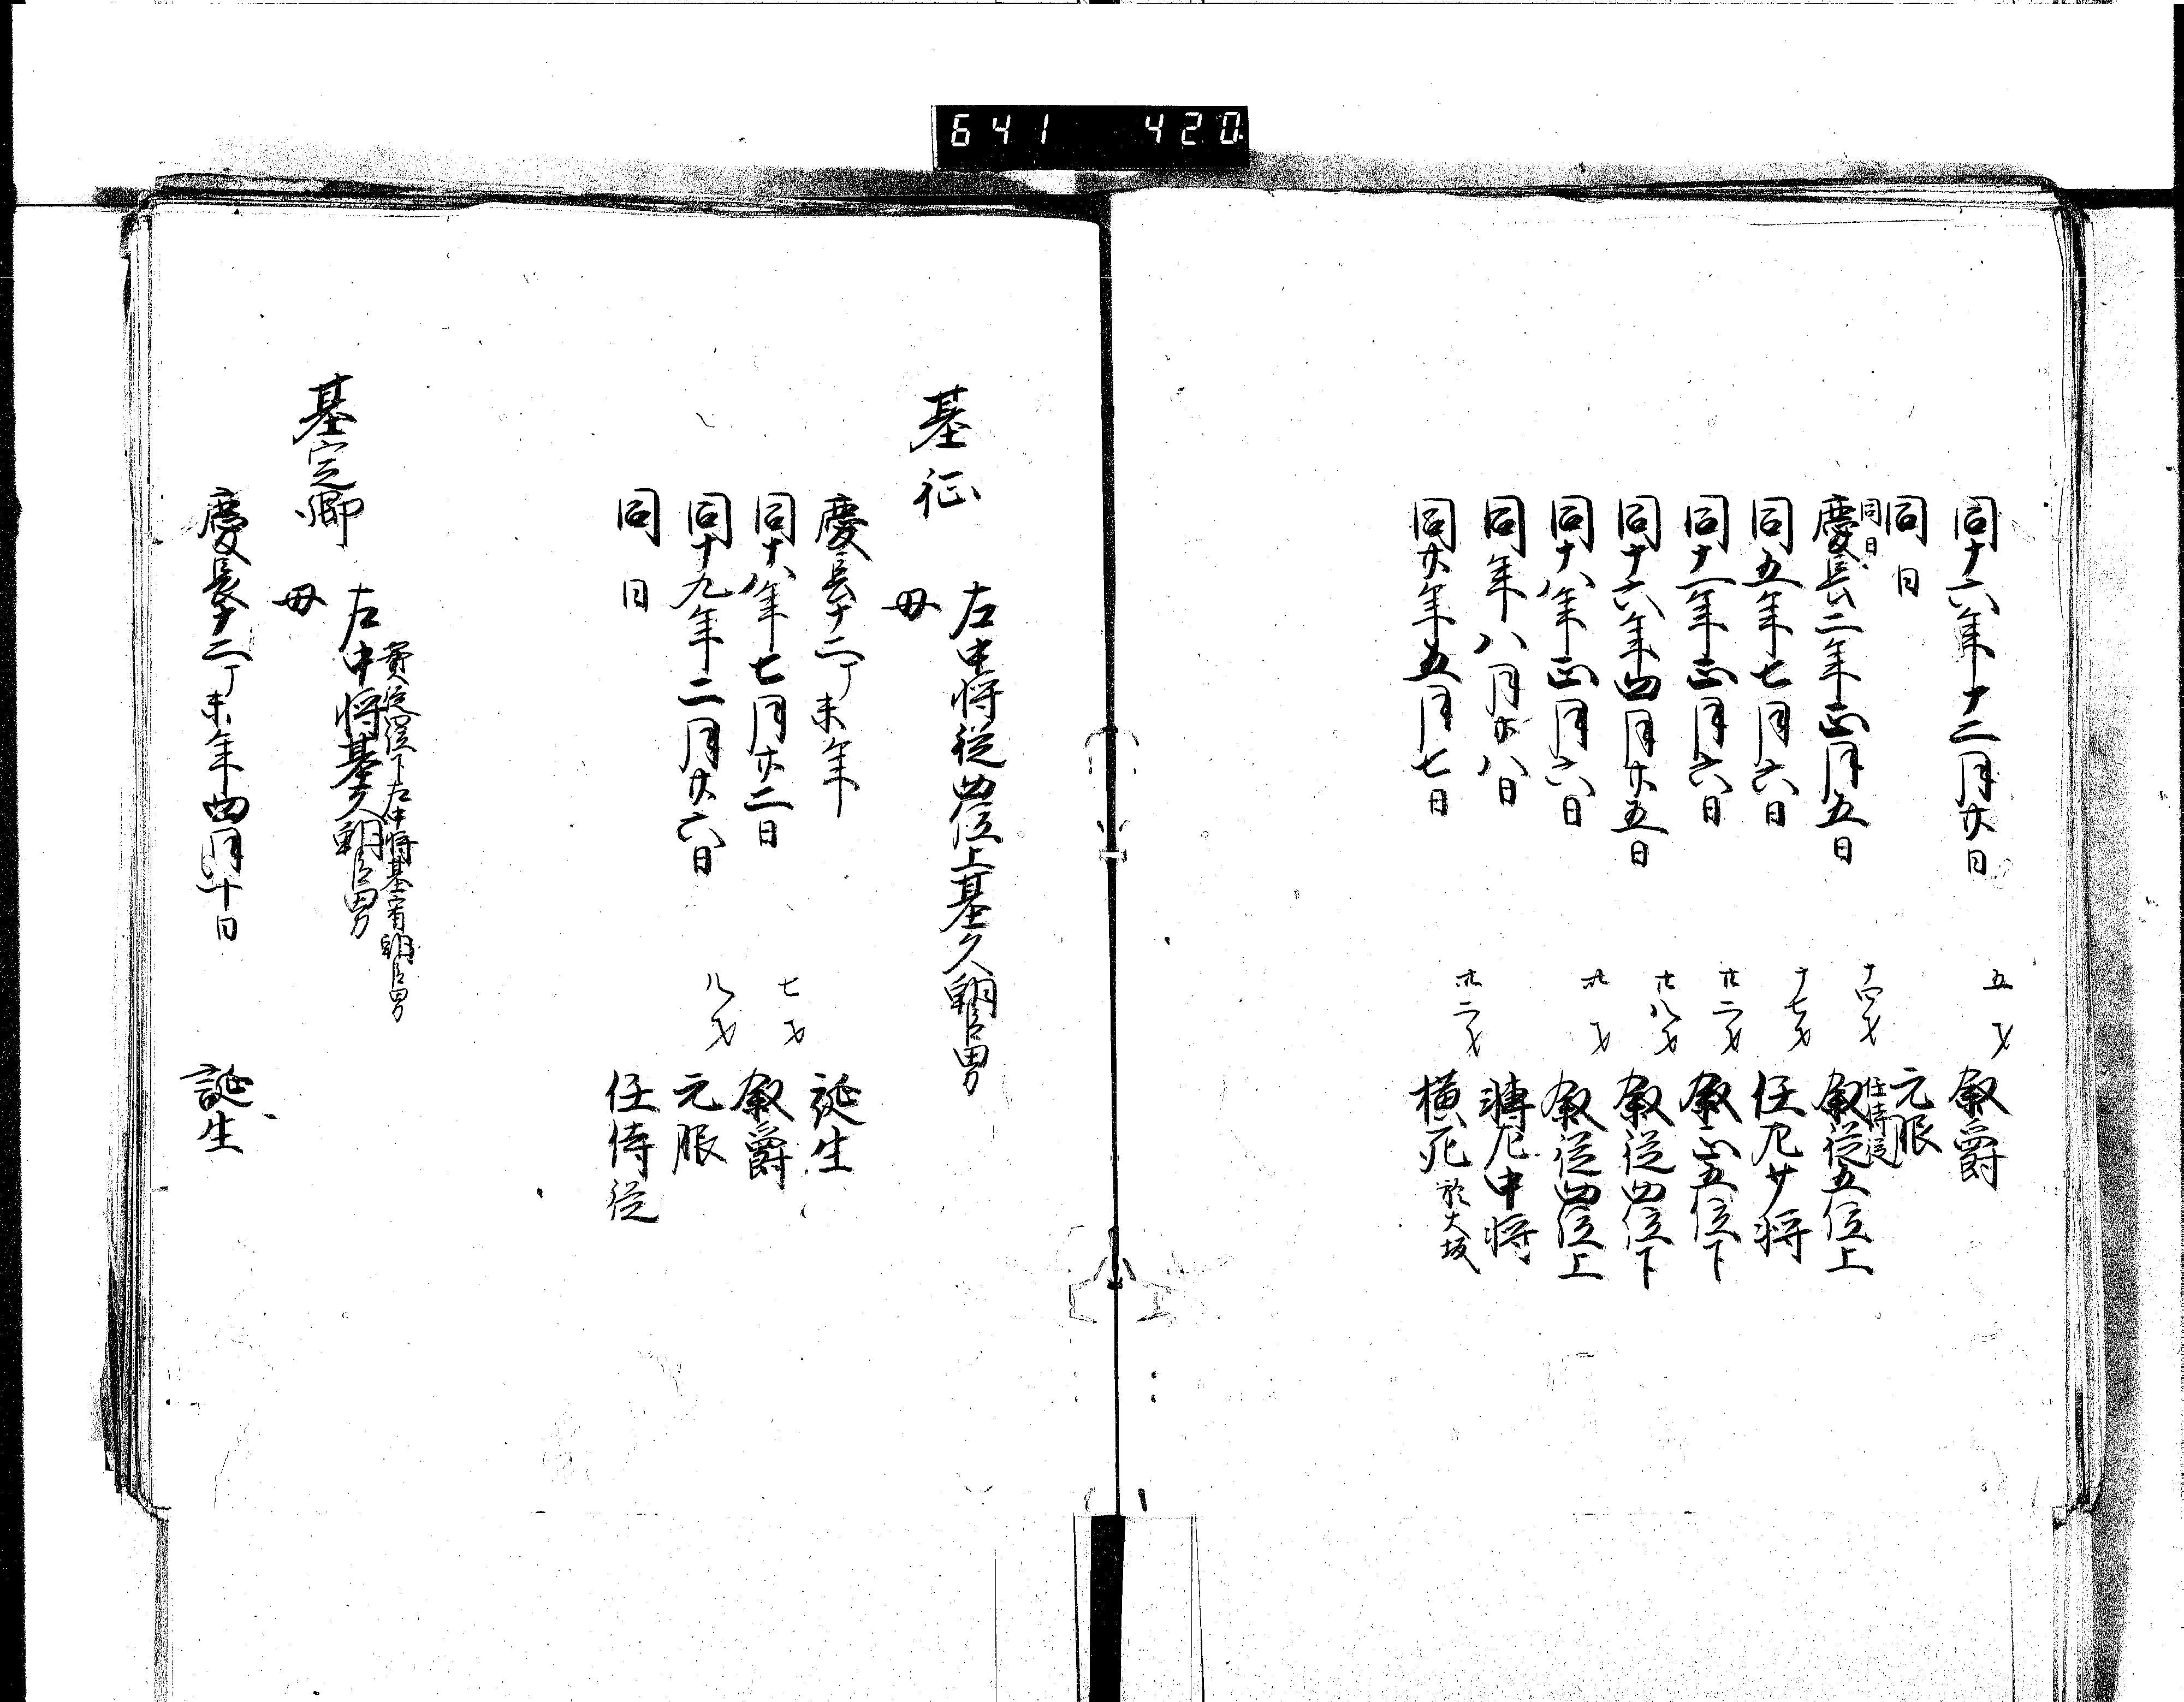 641 420
同十六年十二月廿日 五才 叙爵
同日 元服
同日 任侍従
慶長二年正月五日 十四才 叙従五位上
同五年七月六日 十七才 任左少将
同十一年正月六日 廿二才 叙正五位下
同十六年四月廿五日 廿八才 叙従四位下
同十八年正月六日 卅才 叙従四位上
同年八月廿八日 轉左中将
同廿年五月七日 卅二才 横死 於大坂
基征 左中将従四位上基久朝臣男
母
慶長十二丁未年 誕生
同十八年七月廿二日 七才 叙爵
同十九年十二月廿六日 八才 元服
同日 任侍従
実従四位下左中将基宥朝臣男
基定卿 左中将基久朝臣男
母
慶長十二丁未年四月十日 誕生